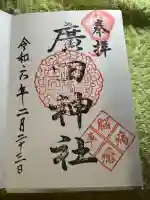 奉拝
廣田神社
令和六年二月二十三日